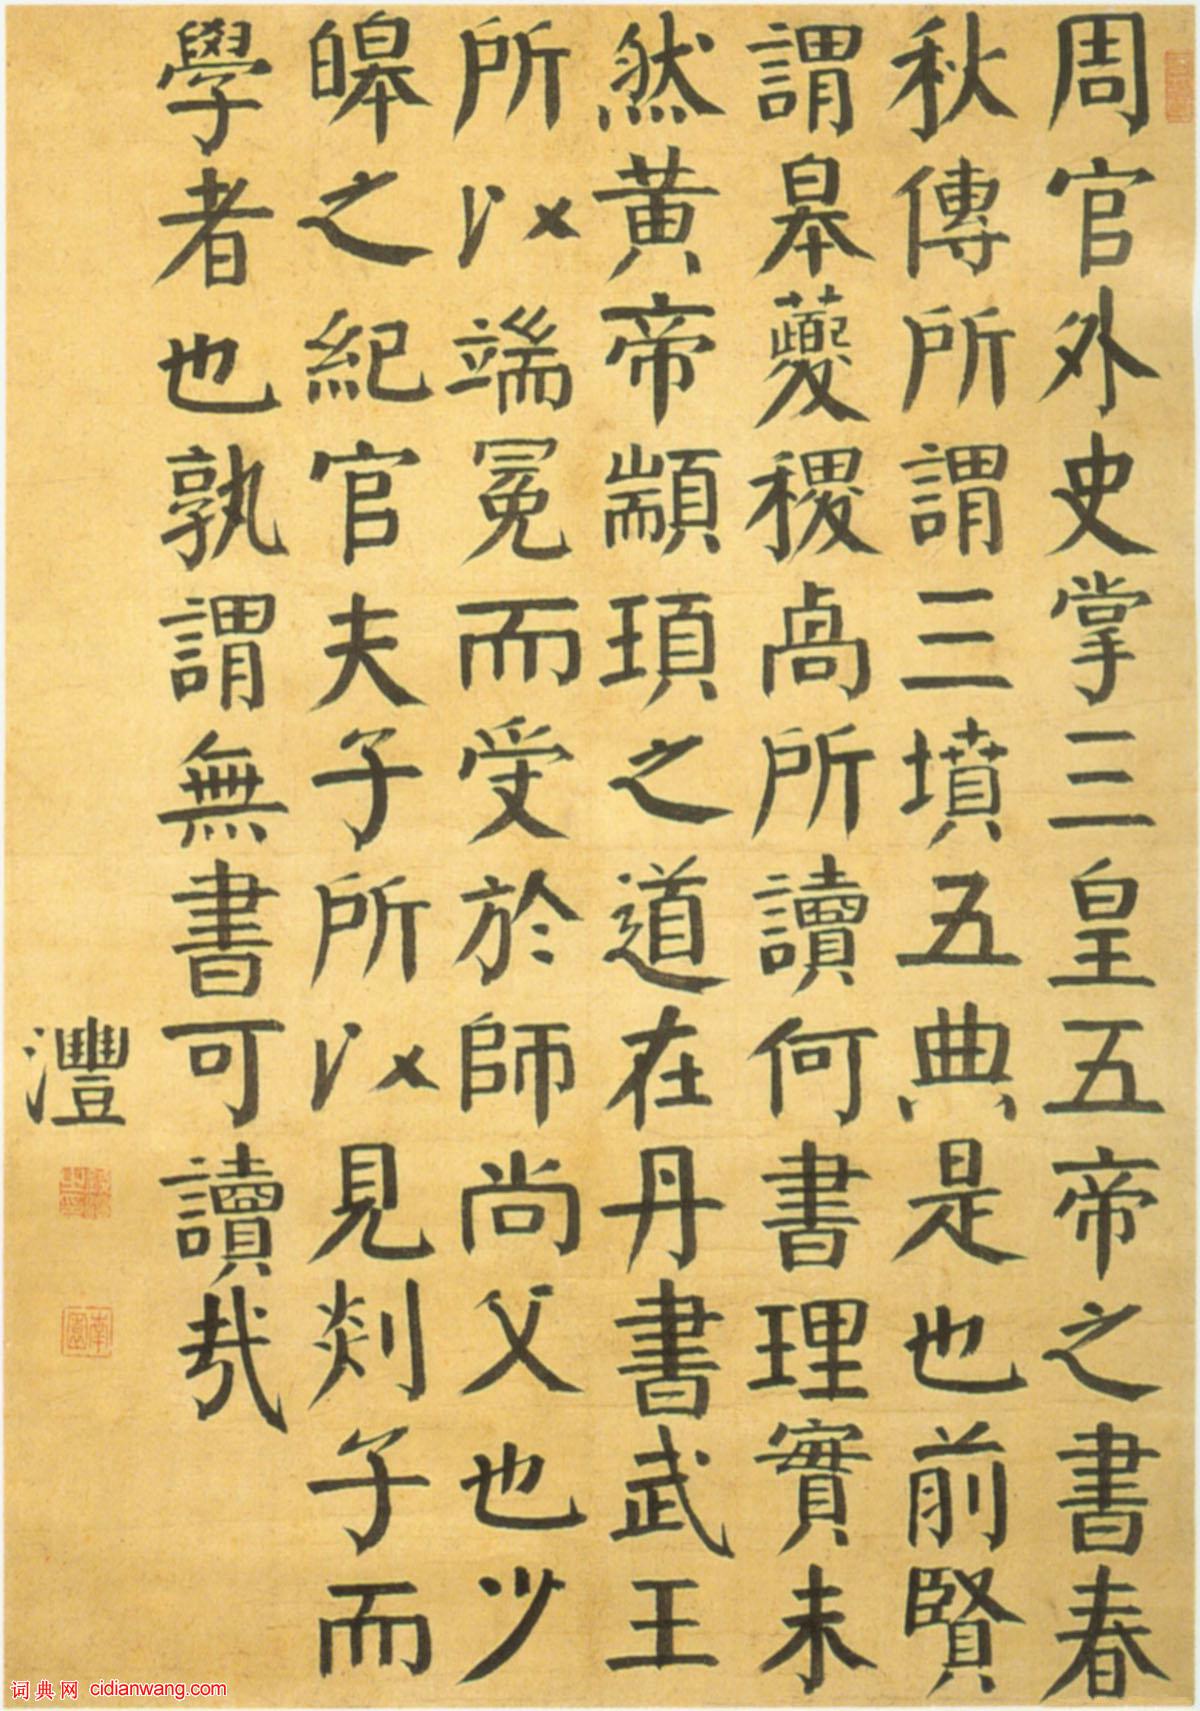 周官外史掌三皇五帝之書春
秋傳所謂三墳五典是也前賢
謂皋夔稷卨所讀何書理實未
然黃帝顓頊之道在丹書武王
所以端冕而受於師尚父也少
皞之紀官夫子所以見郯子而
學者也孰謂無書可讀哉
灃
词典网 cidianwang.com